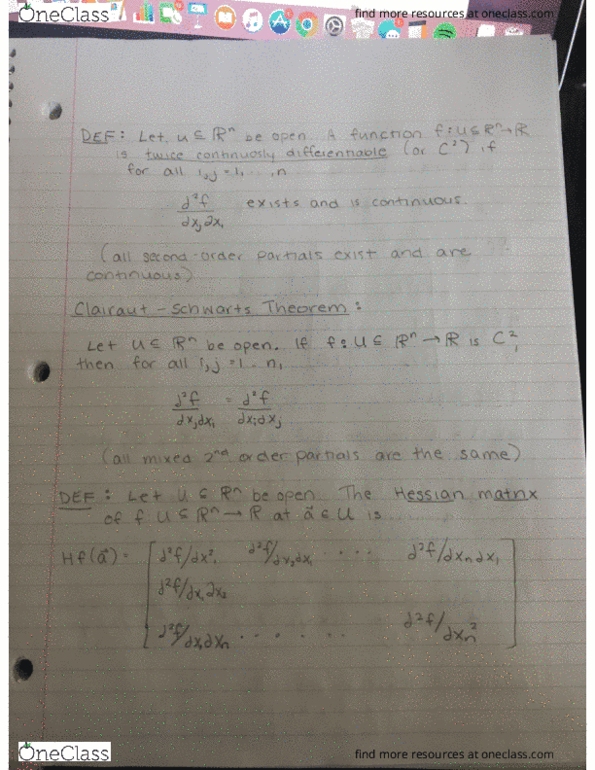 OneClass
find more resources at oneclass.com
DEF: Let u ⊆ ℝⁿ be open. A function f: U ⊆ ℝⁿ → ℝ
is twice continuosly differentiable (or C²) if
for all i,j = 1, ..., n
∂²f/∂xⱼ∂xᵢ exists and is continuous.
(all second-order partials exist and are
continuous)
Clairaut-Schwarts Theorem:
Let U ⊆ ℝⁿ be open. If f: U ⊆ ℝⁿ → ℝ is C²,
then for all i,j = 1...n,
∂²f/∂xⱼ∂xᵢ = ∂²f/∂xᵢ∂xⱼ
(all mixed 2nd order partials are the same)
DEF: Let U ⊆ ℝⁿ be open. The Hessian matrix
of f U ⊆ ℝⁿ → ℝ at a⃗ ∈ U is
Hf(a⃗) = [ ∂²f/∂x²₁ ∂²f/∂x₂∂x₁ .... ∂²f/∂xₙ∂x₁
∂²f/∂x₁∂x₂
∂²f/∂x₁∂xₙ ...... ∂²f/∂xₙ² ]
OneClass
find more resources at oneclass.com